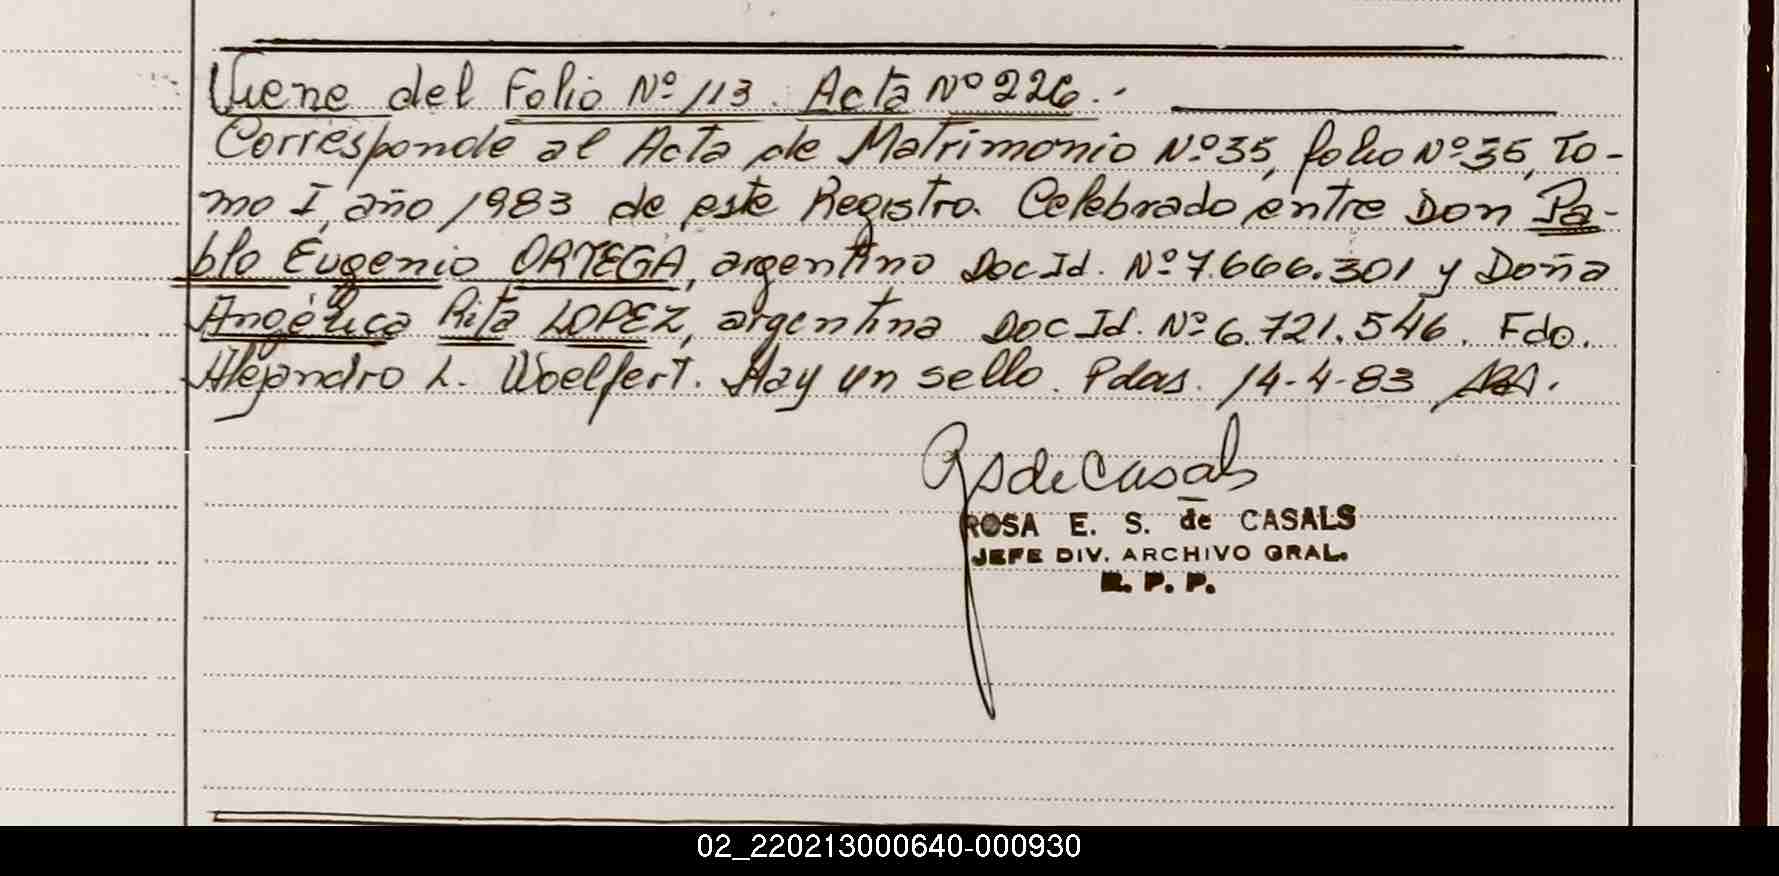 Viene del Folio Nº 113. Acta Nº 226.-
Corresponde al Acta de Matrimonio Nº 35, folio Nº 35, To-
mo I, año 1983 de este Registro. Celebrado entre Don Pa-
blo Eugenio ORTEGA, argentino Doc Id. Nº 7.666.301 y Doña
Angélica Rita LOPEZ, argentina Doc Id. Nº 6.721.546. Fdo.
Alejandro L. Woelfert. Hay un sello. Pdas. 14-4-83
RS de Casals
ROSA E. S. de CASALS
JEFE DIV. ARCHIVO GRAL.
R. P. P.
02_220213000640-000930